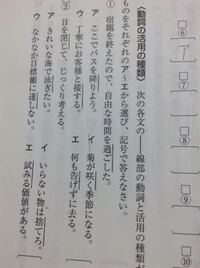 〈動詞の活用の種類〉 次の各文の 線部の動詞と活用の種類が
ものをそれぞれのア～エから選び、記号で答えなさい。
① 宿題を終えたので、自由な時間を過ごした。
ア ここでバスを降りよう。 イ 菊が咲く季節になる。
ウ 丁寧にお客様と接する。 エ 何も告げずに去る。
② 目を閉じて、じっくり考える。
ア きれいな海で泳ぎたい。 イ いらない物は捨てろ。
ウ なかなか目標額に達しない。 エ 試みる価値がある。
⑥
ア
⑦
⑧
⑨
⑩